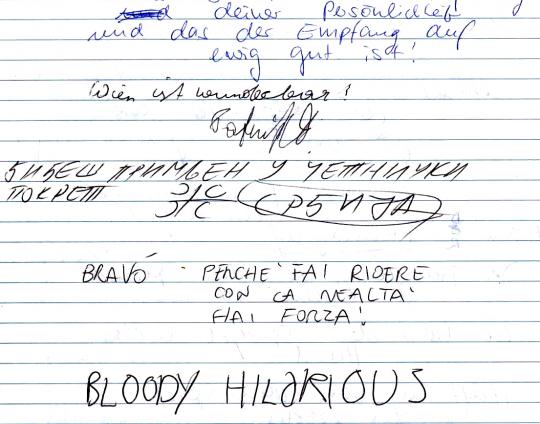 deiner Persönlichkeit
und das der Empfang auf
ewig gut ist!
Wien ist wunderbar!
БИЋЕШ ПРИМЉЕН У ЧЕТНИЧКИ
ПОКРЕТ
СРБИЈА
BRAVÓ - PERCHE' FAI RIDERE
CON LA REALTA'
HAI FORZA!
BLOODY HILARIOUS